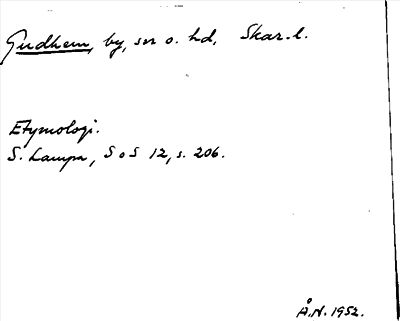 Gudhem, by, sn o. hd, Skar.l.
Etymologi.
S. Lampa, SoS 12, s. 206.
Å.N. 1952.